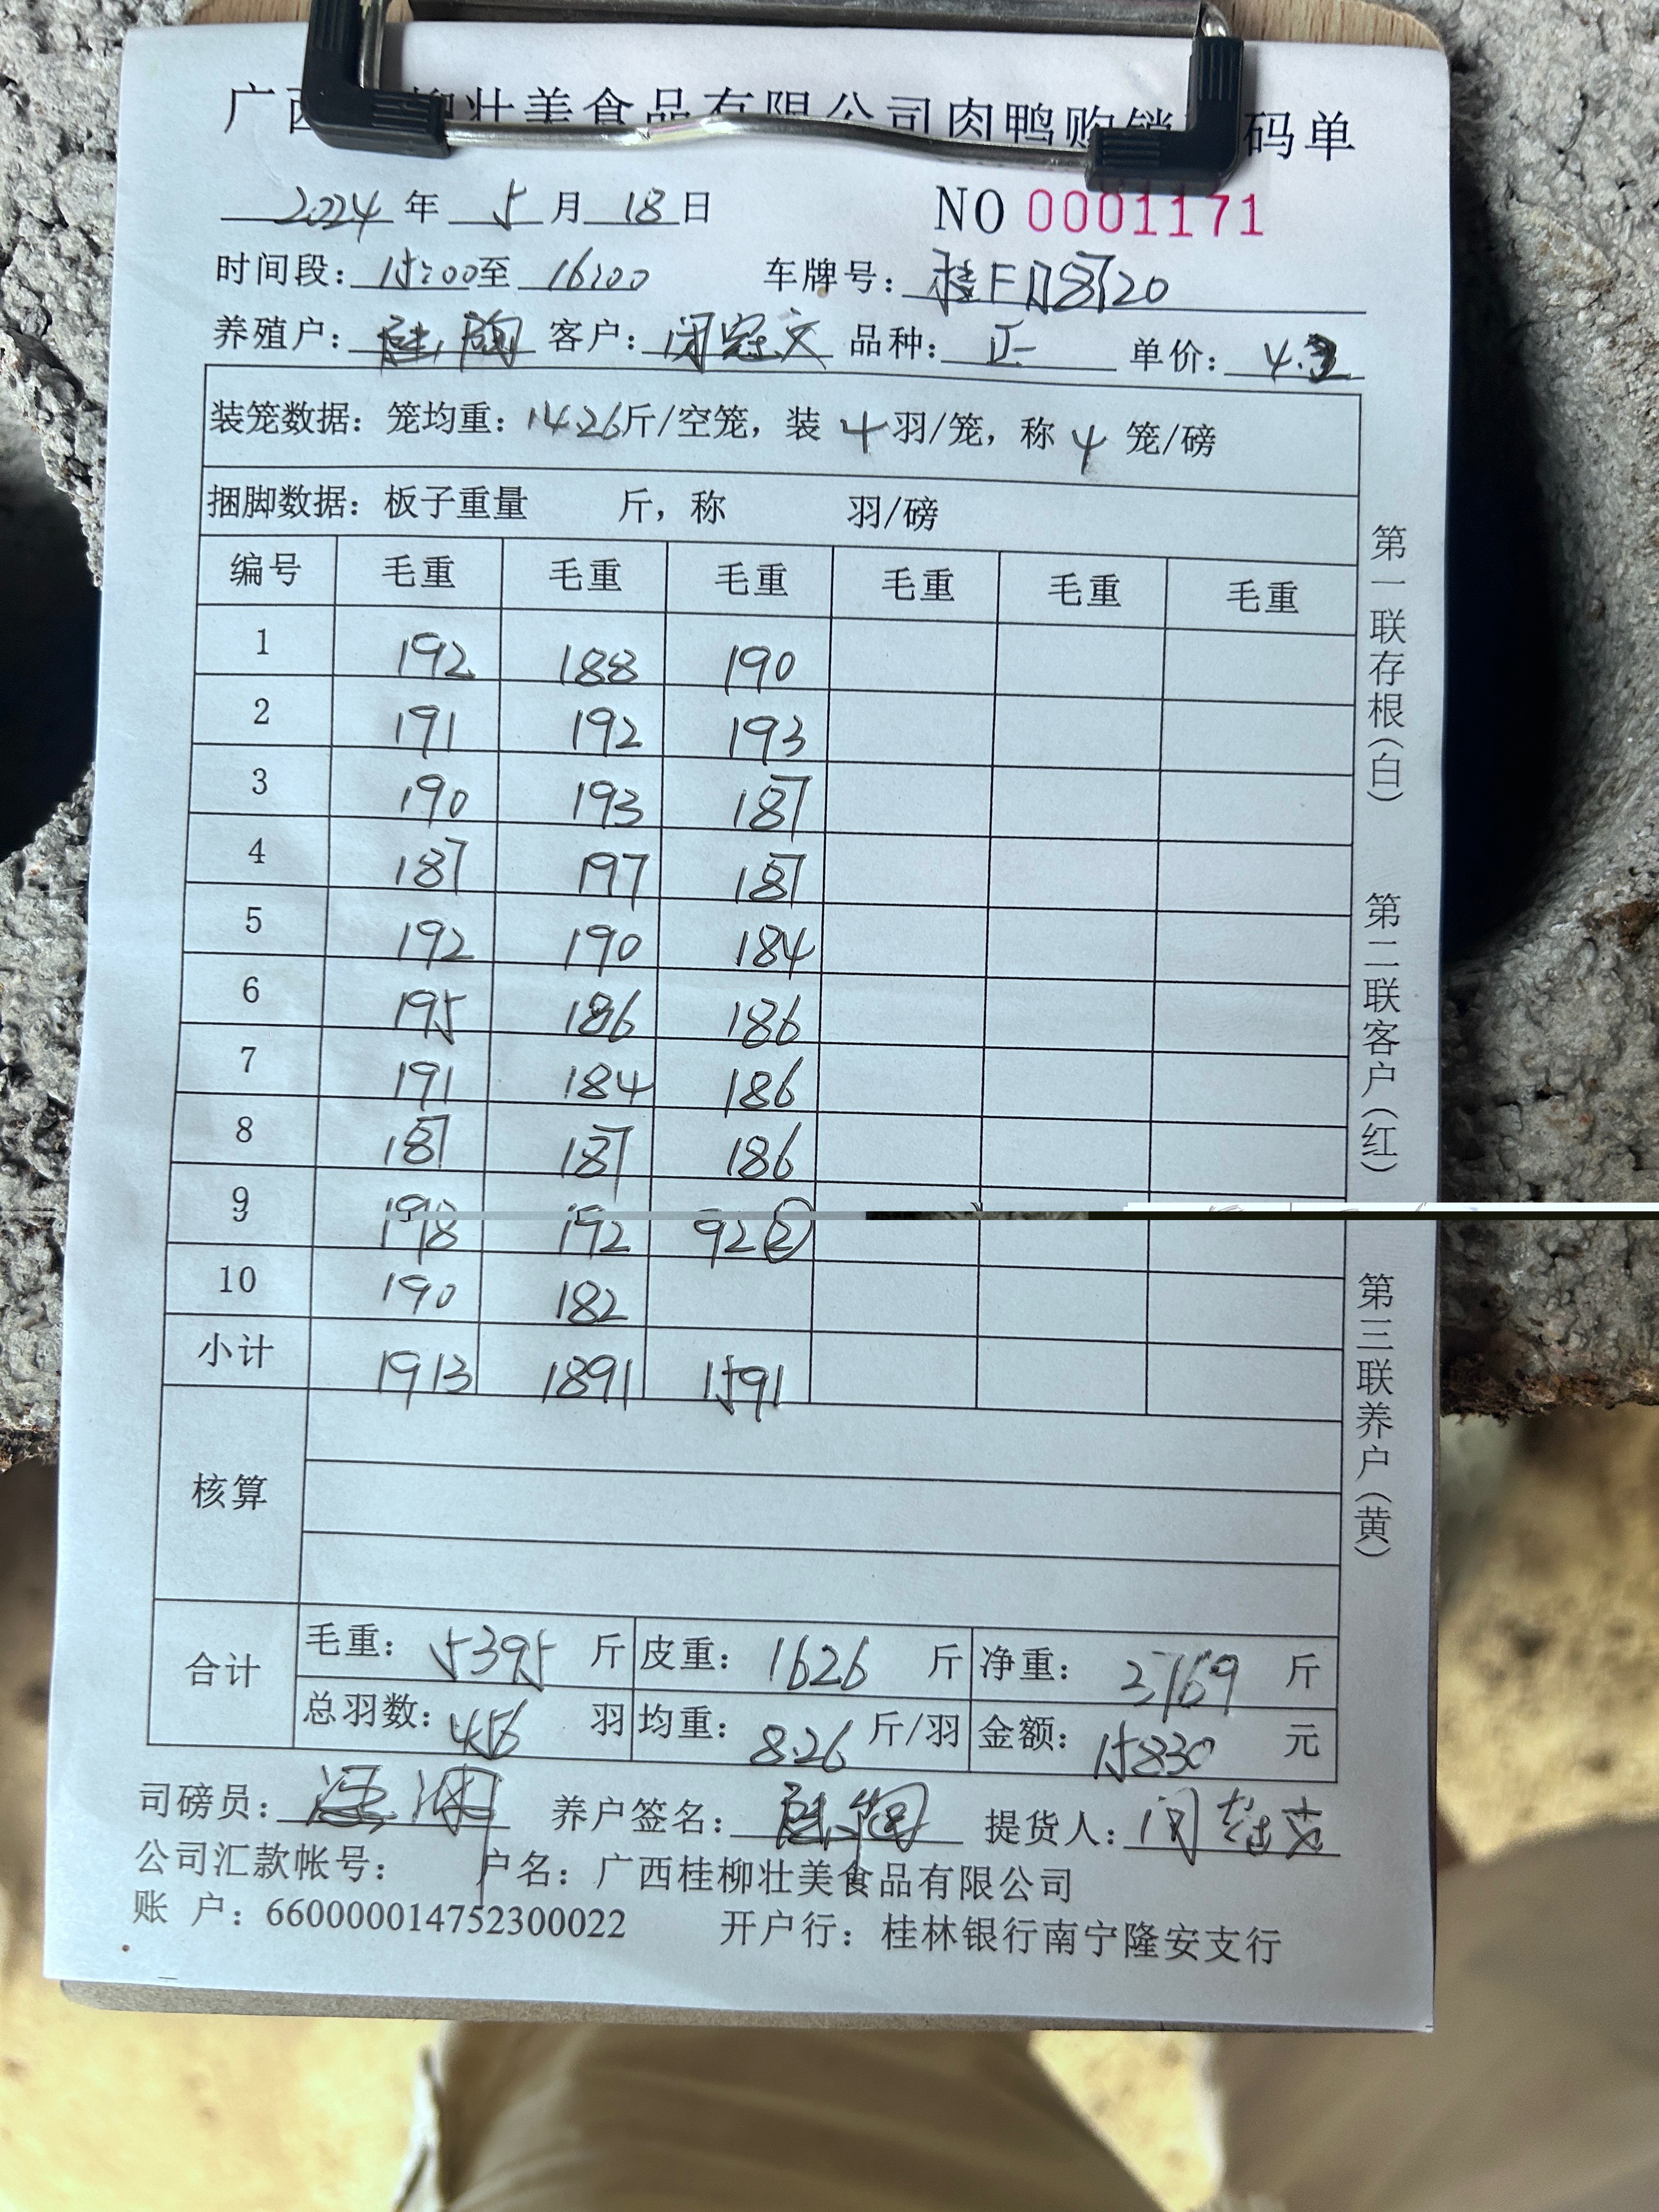 广西柳壮美食品有限公司肉鸭购销码单
2024年 5月 18日 NO 0001171
时间段: 15:00至 16:00 车牌号: 桂F D8720
养殖户: 客户: 闭冠文 品种: 正 单价: 4.2
装笼数据: 笼均重: 14.26斤/空笼, 装 4羽/笼, 称 4 笼/磅
捆脚数据: 板子重量 斤, 称 羽/磅
编号 毛重 毛重 毛重 毛重 毛重 毛重
1 192 188 190
2 191 192 193
3 190 193 187
4 187 197 187
5 192 190 184
6 195 186 186
7 191 184 186
8 187 187 186
9 198 192 92②
10 190 182
小计 1913 1891 1591
核算
合计
毛重: 5395 斤 皮重: 1626 斤 净重: 3769 斤
总羽数: 456 羽 均重: 8.26 斤/羽 金额: 15830 元
司磅员: 养户签名: 提货人:
公司汇款帐号: 户名: 广西桂柳壮美食品有限公司
账 户: 660000014752300022 开户行: 桂林银行南宁隆安支行
第一联存根(白) 第二联客户(红) 第三联养户(黄)